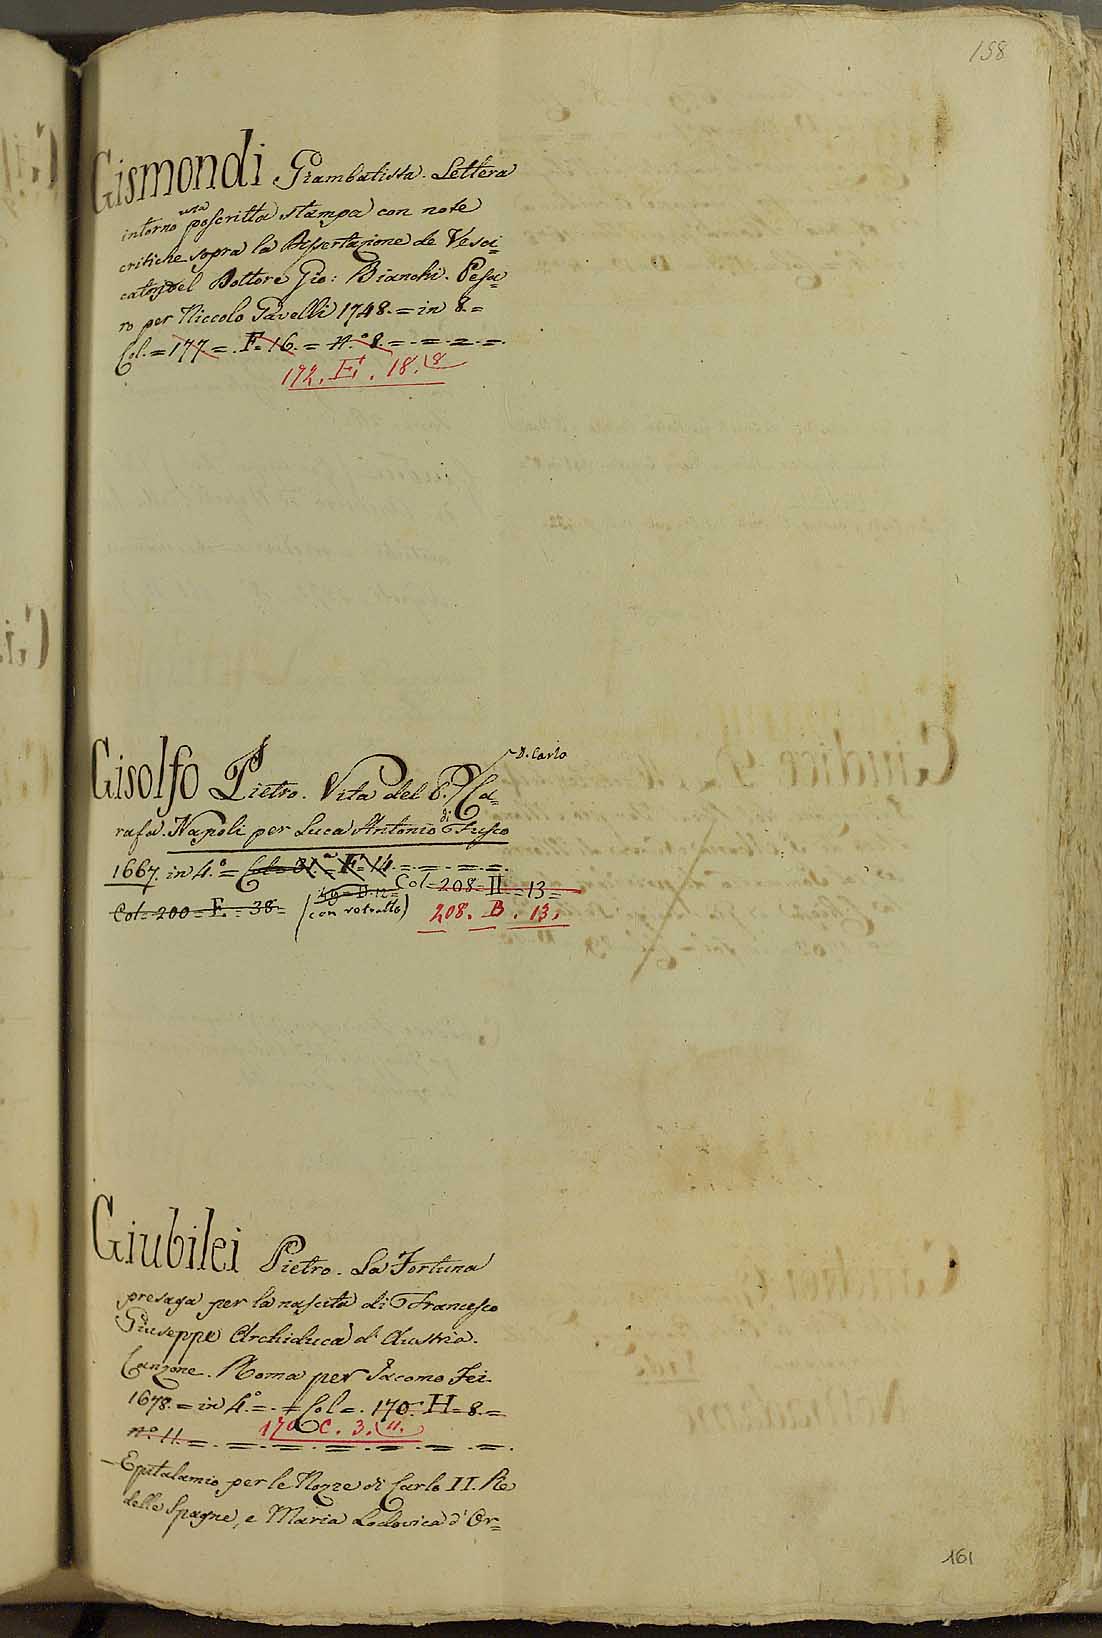 158
Gismondi Giambatista. Lettera
intorno una poscritta stampa con note
critiche sopra la Dissertazione de Vesci=
catorj del Dottore Gio: Bianchi. Pesa=
ro per Niccolo Gavelli 1748. = in 8. =
Col. = 177 = . F. 16. = N.° 8. = . = . = . = .
172. E. 18. 8
Gisolfo Pietro. Vita del P. D. Carlo Ca=
rafa. Napoli per Luca Antonio di Fusco
1667. in 4.° = Col. = 31. = F. 14. = . = . = . = .
Col. 208 = II = 13 =
Col. 200 = F. = 38 = (49 = D. 12 =
con ritratto)
208. B. 13.
Giubilei Pietro. La Fortuna
presaga per la nascita di Francesco
Giuseppe Archiduca d'Austria.
Canzone. Roma per Iacomo Fei.
1678. = in 4.° = . = Col = . 170. H = 8. =
n.° 11. = . = . = . = . = . = .
170 C. 3. 11.
— Epitalamio per le Nozze di Carlo II. Re
delle Spagne, e Maria Lodovica d'Or=
161